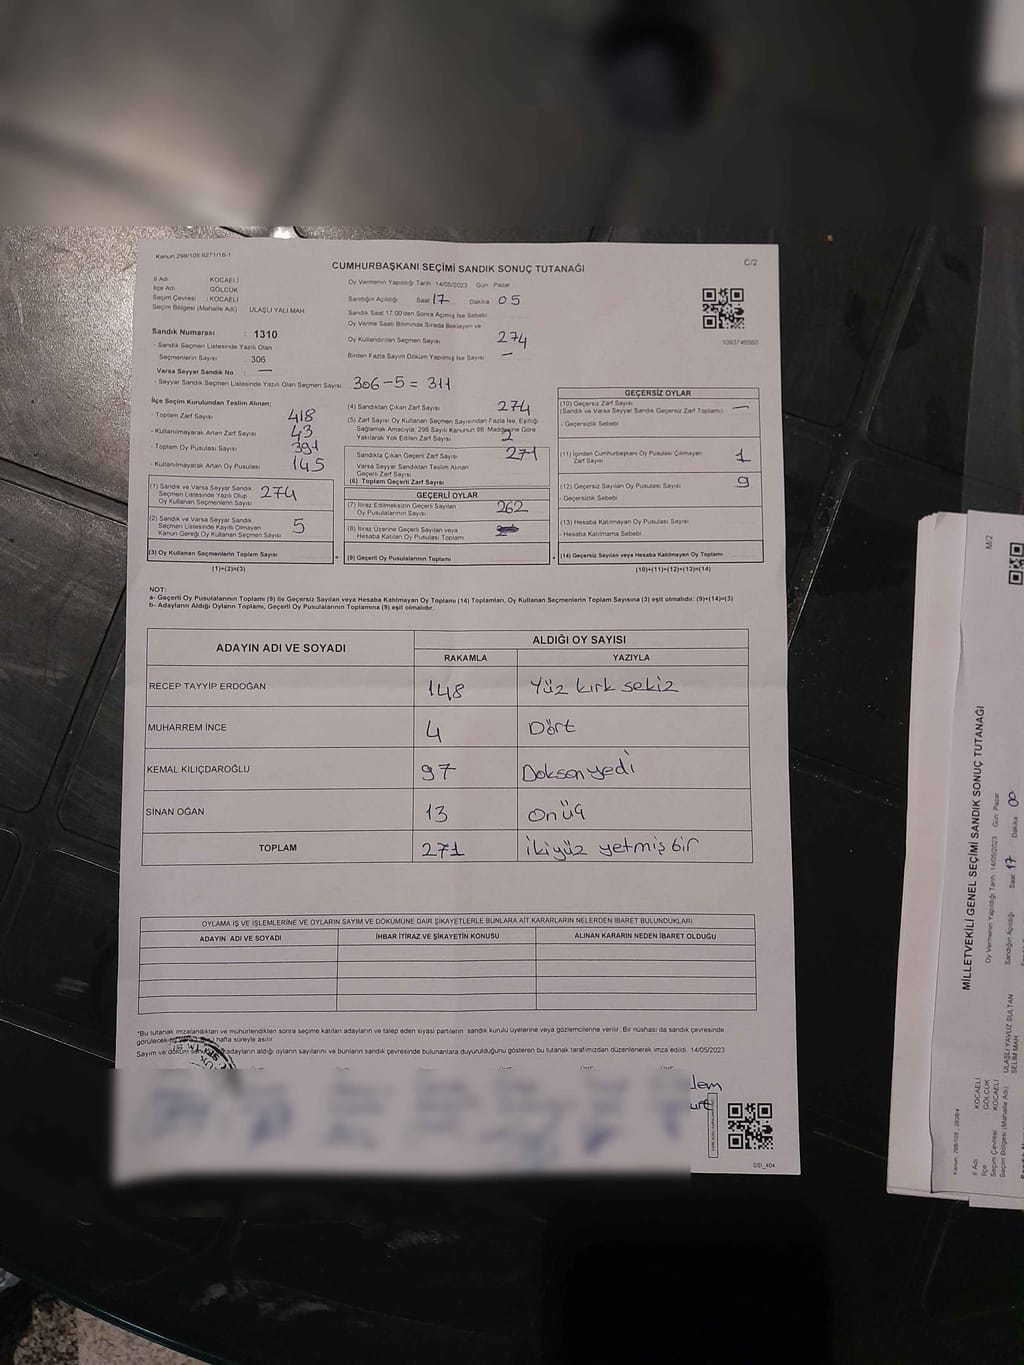 Kanun:298/105;6271/18-1
C/2
CUMHURBAŞKANI SEÇİMİ SANDIK SONUÇ TUTANAĞI
İl Adı KOCAELİ
İlçe Adı GÖLCÜK
Seçim Çevresi : KOCAELİ
Seçim Bölgesi (Mahalle Adı) ULAŞLI YALI MAH
Sandık Numarası : 1310
- Sandık Seçmen Listesinde Yazılı Olan
Seçmenlerin Sayısı : 306
Varsa Seyyar Sandık No : —
- Seyyar Sandık Seçmen Listesinde Yazılı Olan Seçmen Sayısı: 306-5 = 311
Oy Vermenin Yapıldığı Tarih :14/05/2023 Gün : Pazar
Sandığın Açıldığı Saat 17 Dakika 05
Sandık Saat 17:00'den Sonra Açılmış İse Sebebi
Oy Verme Saati Bitiminde Sırada Bekleyen ve
Oy Kullandırılan Seçmen Sayısı 274
Birden Fazla Sayım Döküm Yapılmış İse Sayısı —
1093746580
İlçe Seçim Kurulundan Teslim Alınan;
- Toplam Zarf Sayısı 418
- Kullanılmayarak Artan Zarf Sayısı 43
- Toplam Oy Pusulası Sayısı 391
- Kullanılmayarak Artan Oy Pusulası 145
(1) Sandık ve Varsa Seyyar Sandık
Seçmen Listesinde Yazılı Olup
Oy Kullanan Seçmenlerin Sayısı 274
(2) Sandık ve Varsa Seyyar Sandık
Seçmen Listesinde Kayıtlı Olmayan
Kanun Gereği Oy Kullanan Seçmen Sayısı 5
(3) Oy Kullanan Seçmenlerin Toplam Sayısı
(1)+(2)=(3)
=
(4) Sandıktan Çıkan Zarf Sayısı 274
(5) Zarf Sayısı Oy Kullanan Seçmen Sayısından Fazla İse, Eşitliği
Sağlamak Amacıyla; 298 Sayılı Kanunun 98. Maddesine Göre
Yakılarak Yok Edilen Zarf Sayısı 2
Sandıkta Çıkan Geçerli Zarf Sayısı 271
Varsa Seyyar Sandıktan Teslim Alınan
Geçerli Zarf Sayısı
(6) Toplam Geçerli Zarf Sayısı
GEÇERLİ OYLAR
(7) İtiraz Edilmeksizin Geçerli Sayılan
Oy Pusulalarının Sayısı 262
(8) İtiraz Üzerine Geçerli Sayılan veya
Hesaba Katılan Oy Pusulası Toplamı
(9) Geçerli Oy Pusulalarının Toplamı
+
GEÇERSİZ OYLAR
(10) Geçersiz Zarf Sayısı —
(Sandık ve Varsa Seyyar Sandık Geçersiz Zarf Toplamı)
- Geçersizlik Sebebi
(11) İçinden Cumhurbaşkanı Oy Pusulası Çıkmayan
Zarf Sayısı 1
(12) Geçersiz Sayılan Oy Pusulası Sayısı 9
- Geçersizlik Sebebi
(13) Hesaba Katılmayan Oy Pusulası Sayısı
- Hesaba Katılmama Sebebi
(14) Geçersiz Sayılan veya Hesaba Katılmayan Oy Toplamı
(10)+(11)+(12)+(13)=(14)
NOT:
a- Geçerli Oy Pusulalarının Toplamı (9) ile Geçersiz Sayılan veya Hesaba Katılmayan Oy Toplamı (14) Toplamları, Oy Kullanan Seçmenlerin Toplam Sayısına (3) eşit olmalıdır. (9)+(14)=(3)
b- Adayların Aldığı Oyların Toplamı, Geçerli Oy Pusulalarının Toplamına (9) eşit olmalıdır.
ADAYIN ADI VE SOYADI ALDIĞI OY SAYISI
RAKAMLA YAZIYLA
RECEP TAYYİP ERDOĞAN 148 Yüz kırk sekiz
MUHARREM İNCE 4 Dört
KEMAL KILIÇDAROĞLU 97 Doksan yedi
SİNAN OĞAN 13 Onüç
TOPLAM 271 İkiyüz yetmiş bir
OYLAMA İŞ VE İŞLEMLERİNE VE OYLARIN SAYIM VE DÖKÜMÜNE DAİR ŞİKAYETLERLE BUNLARA AİT KARARLARIN NELERDEN İBARET BULUNDUKLARI
ADAYIN ADI VE SOYADI İHBAR İTİRAZ VE ŞİKAYETİN KONUSU ALINAN KARARIN NEDEN İBARET OLDUĞU
*Bu tutanak imzalandıktan ve mühürlendikten sonra seçime katılan adayların ve talep eden siyasi partilerin sandık kurulu üyelerine veya gözlemcilerine verilir. Bir nüshası da sandık çevresinde
hafta süreyle asılır.
Sayım ve döküm adayların aldığı oyların sayılarını ve bunların sandık çevresinde bulunanlara duyurulduğunu gösteren bu tutanak tarafımızdan düzenlenerek imza edildi. 14/05/2023
SSI_404
M/2
MİLLETVEKİLİ GENEL SEÇİMİ SANDIK SONUÇ TUTANAĞI
Oy Vermenin Yapıldığı Tarih :14/05/2023 Gün: Pazar
Sandığın Açıldığı Saat 17 Dakika 00
İl Adı KOCAELİ
İlçe GÖLCÜK
Seçim Çevresi KOCAELİ
Seçim Bölgesi (Mahalle Adı) ULAŞLI YAVUZ SULTAN
SELİM MAH